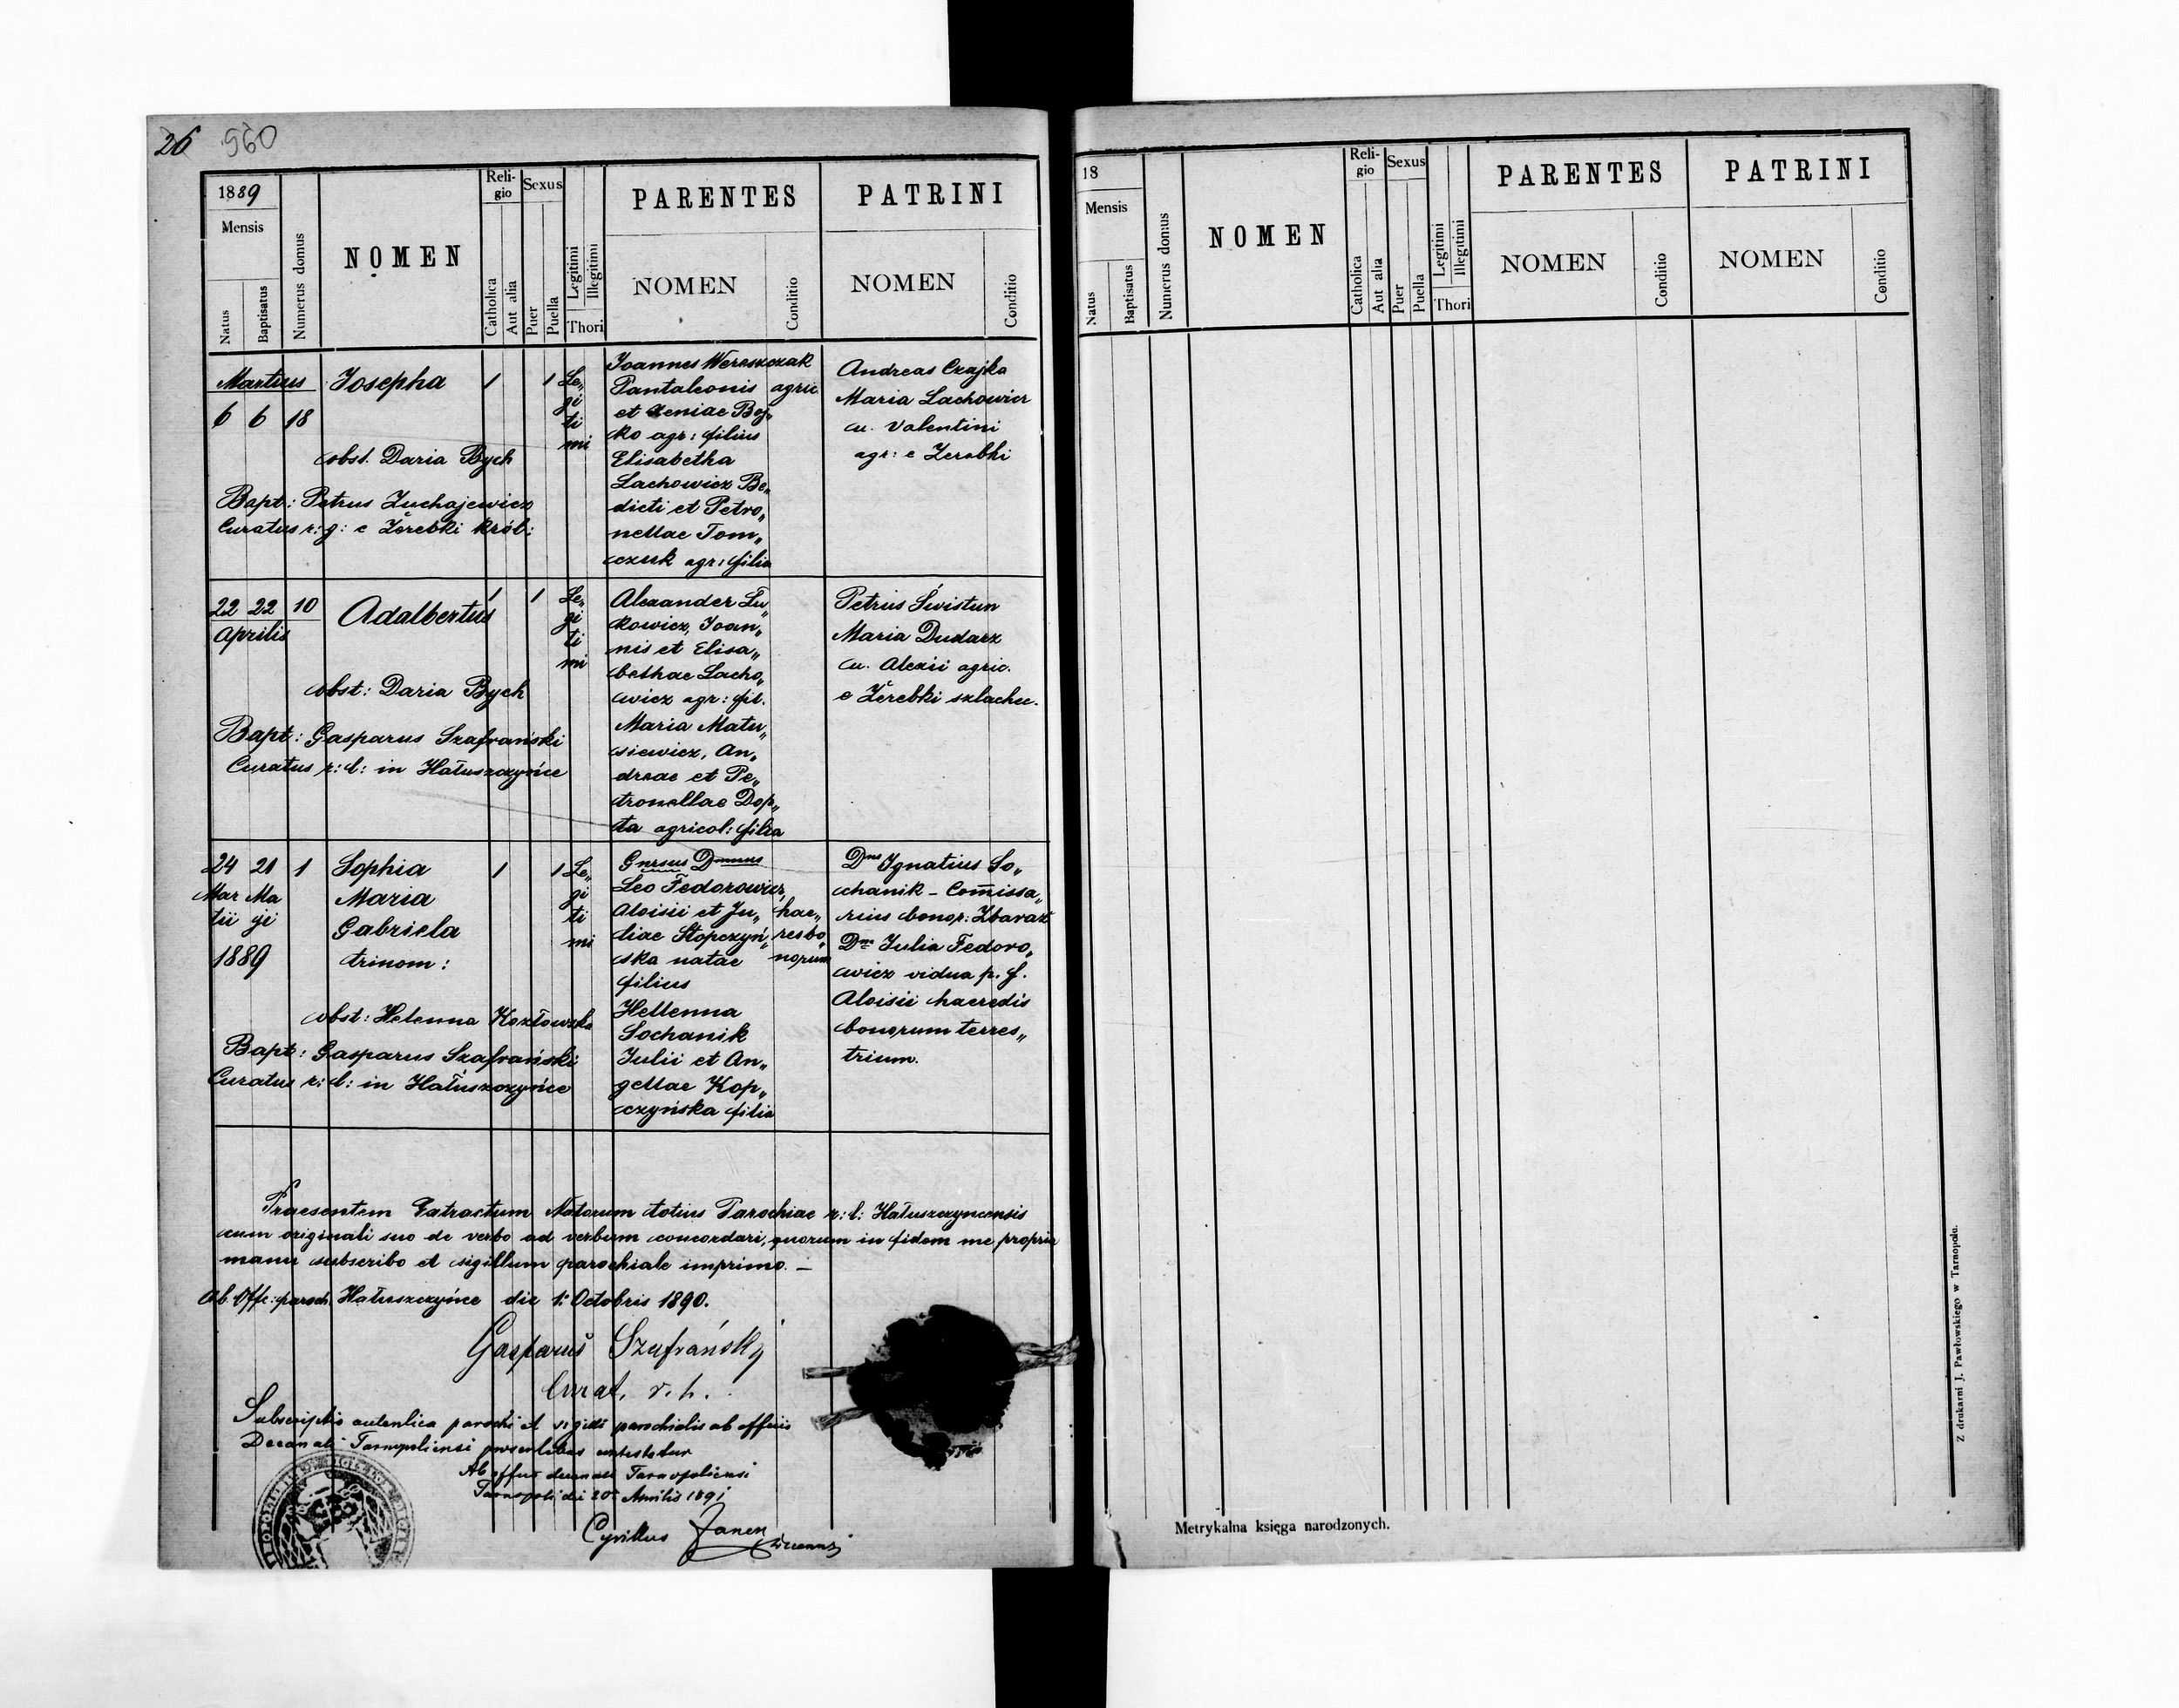 26 560
1889
Mensis
Natus
Baptisatus
Numerus domus
NOMEN
Reli-
gio
Catholica
Aut alia
Sexus
Puer
Puella
Legitimi
Illegitimi
Thori
PARENTES
NOMEN
Conditio
PATRINI
NOMEN
Conditio
Martius
6 6 18
Josepha
1 1
Le„
gi
ti
mi
obst. Daria Bych
Bapt: Petrus Żuchajewicz
Curatus r: g: e Żerebki król:
Joannes Wereszczak
Pantaleonis agric.
et Xeniae Boj„
ko agr: filius
Elisabetha
Lachowicz Be„
dicti et Petro„
nellae Tom„
czuk agr: filia
Andreas Czajka
Maria Lachowicz
cu. Valentini
agr: e Zerebki
22 22 10
Aprilis
Adalbertus
1 1
Le„
gi
ti
mi
obst: Daria Bych
Bapt: Gasparus Szafrański
Curatus r: l: in Hałuszczyńce
Alexander Lu„
kowicz, Joan„
nis et Elisa„
bethae Lacho„
wicz agr: fil.
Maria Matu„
siewicz, An„
dreae et Pe„
tronellae Dop„
ta agricol: filia
Petrus Świstun
Maria Dudarz
cu. Alexii agric.
e Żerebki szlachec.
24 21 1
Mar Ma
tii ji
1889
Sophia
Maria
Gabriela
trinom:
1 1
Le„
gi
ti
mi
obst: Helenna Kozłowska
Bapt: Gasparus Szafrański
Curatus r: l: in Hałuszczyńce
Gnsus Dominus
Leo Fedorowicz,
Aloisii et Ju„ hae„
liae Stopczyń„ res bo„
ska natae norum
filius
Hellenna
Sochanik
Julii et An„
gellae Kop„
czyńska filia
Dnus Ignatius So„
chanik - Comissa„
rius bonor: Zbaraż
Dna Julia Fedoro„
wicz vidua p. f.
Aloisii haeredis
bonorum terres„
trium.
Praesentem Extractum Natorum totius Parochiae r: l: Hałuszczyncensis
cum originali suo de verbo ad verbum concordari, quorum in fidem me propria
manu subscribo et sigillum parochiale imprimo. —
Ab Offc: paroch. Hałuszczyńce die 1. Octobris 1890.
Gasparus Szafrański
Curat. r. l.
Subscriptio autentica parochi et sigilli parochialis ab officio
Decanali Tarnopoliensi presentibus
Ab officio decanali Tarnopoliensi
Tarnopoli die 20 Aprilis 1891
Cyrillus
18
Mensis
Natus
Baptisatus
Numerus domus
NOMEN
Reli-
gio
Catholica
Aut alia
Sexus
Puer
Puella
Legitimi
Illegitimi
Thori
PARENTES
NOMEN
Conditio
PATRINI
NOMEN
Conditio
Metrykalna księga narodzonych.
Z drukarni J. Pawłowskiego w Tarnopolu.